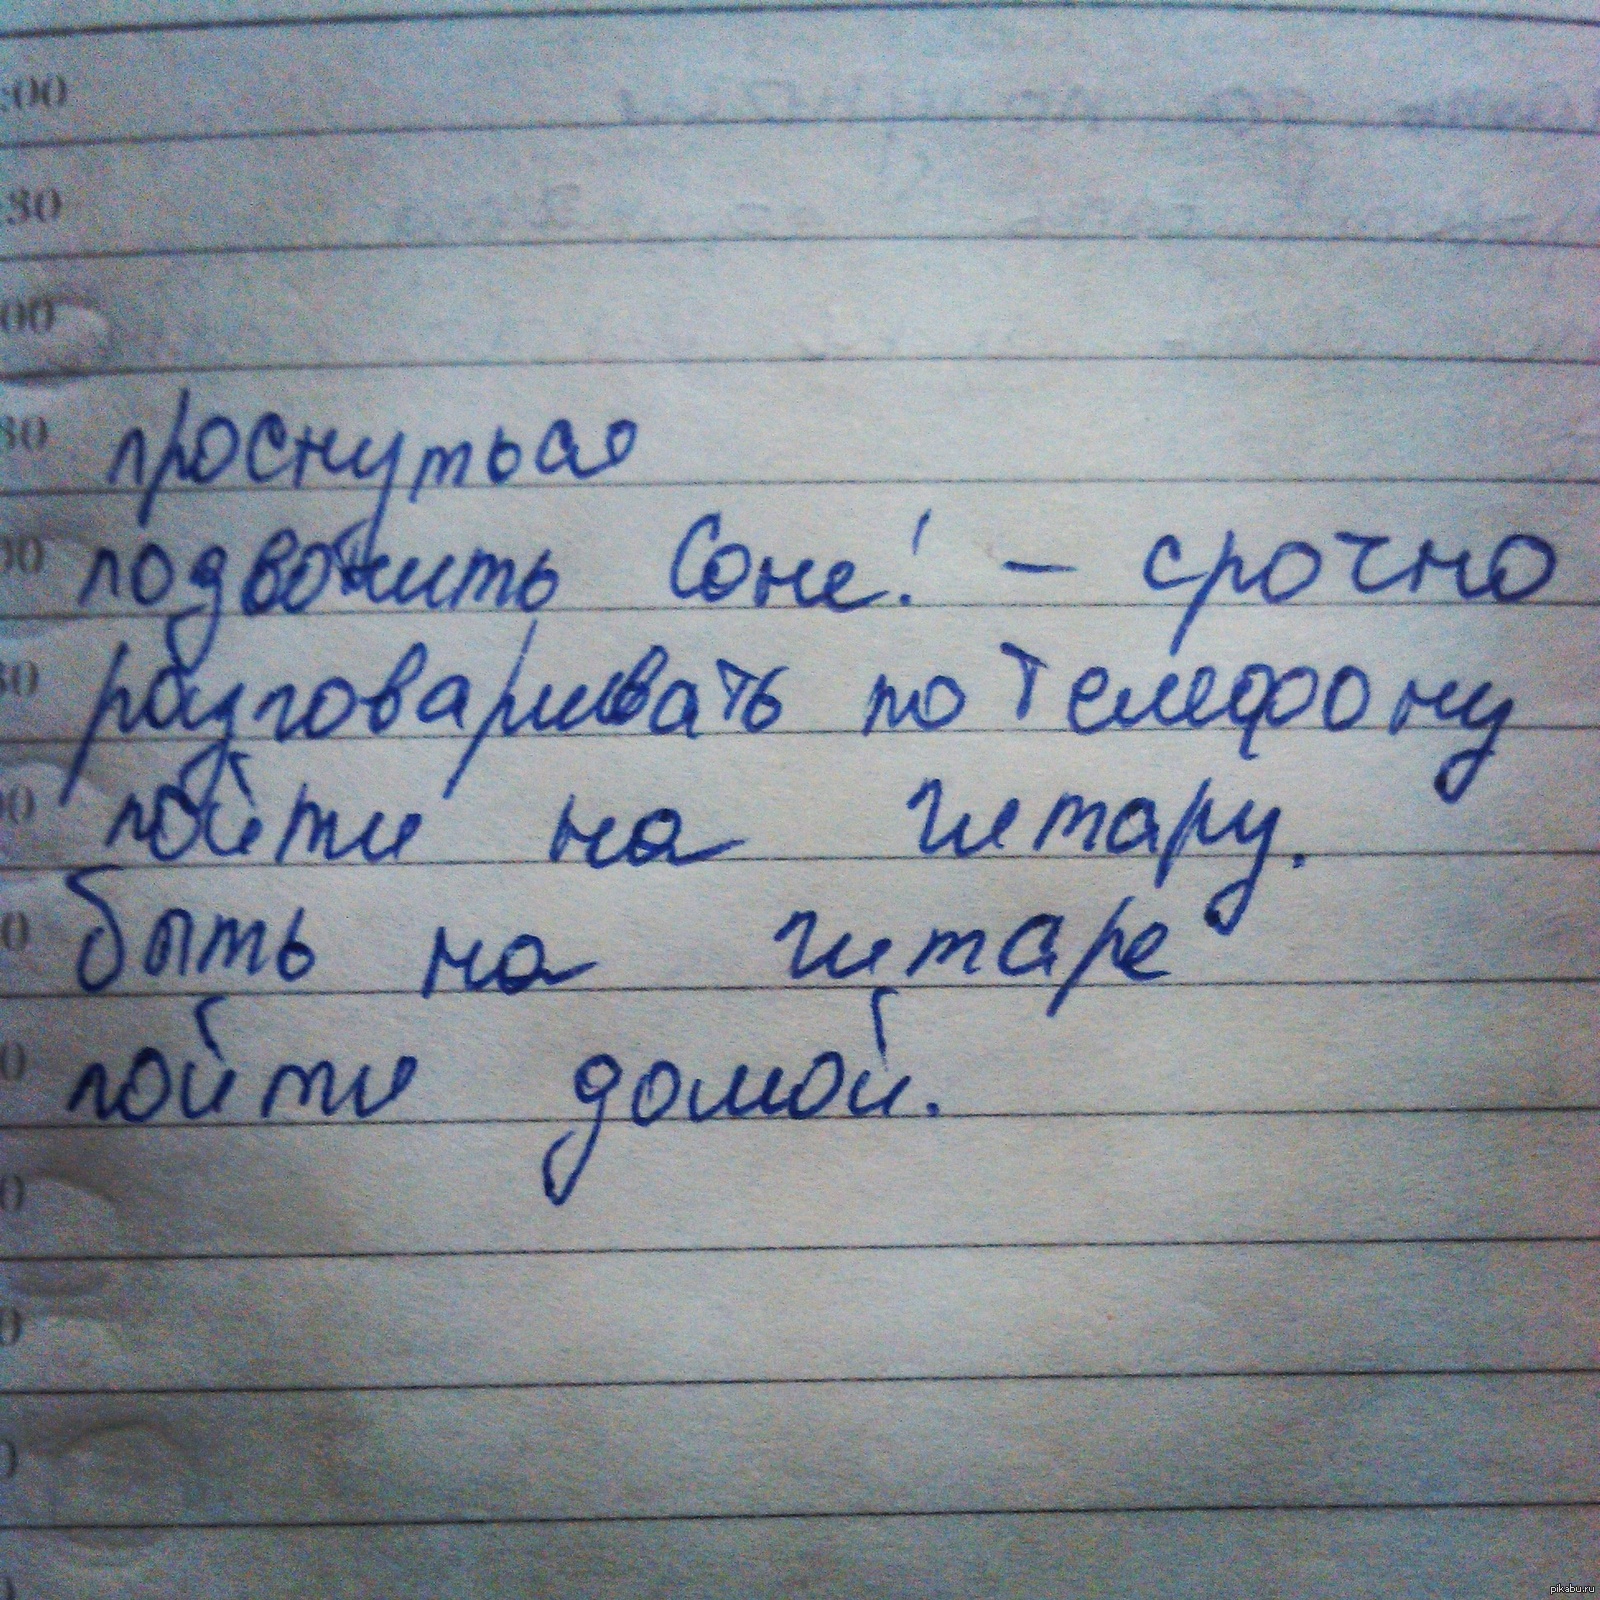 :00
:30
00
30 проснуться
00 подвонить Соне! — срочно
30 разговаривать по телефону
00 пойти на гитару.
0 быть на гитаре
0 пойти домой.
0
0
0
pikabu.ru